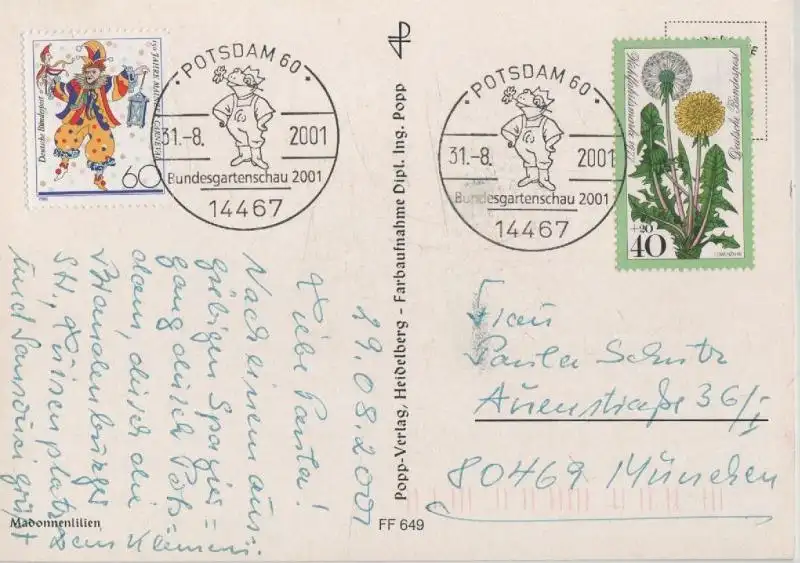 150 JAHRE MAINZER CARNEVAL
Deutsche Bundespost
60
POTSDAM 60
31.-8.
2001
Bundesgartenschau 2001
14467
POTSDAM 60
31.-8.
2001
Bundesgartenschau 2001
14467
Wohlfahrtsmarke 1977
Deutsche Bundespost
+20
40
LÖWENZAHN
29.08.2001
Liebe Paula!
Nach einem aus=
giebigen Spazier=
gang durch Pots=
dam, durch die
Brandenburger
Str., Luisenplatz
und Sanssouci grüßt
Dein Klemens
Popp-Verlag, Heidelberg - Farbaufnahme Dipl. Ing. Popp
Frau
Paula Schutz
Auenstraße 36/I
80469 München
Madonnenlilien
FF 649